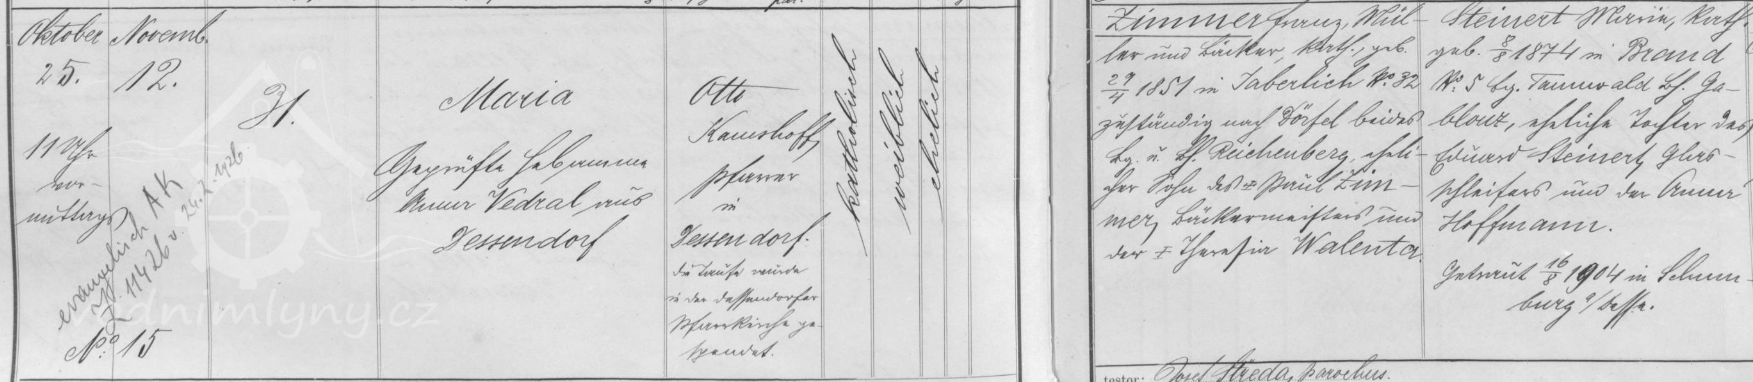 Oktober Novemb.
25. 12.
11 Uhr
vor-
mittags
evangelisch AK
Z. 11426 v. 24.2.1926
No: 15
31.
Maria
Geprüfte Hebamme
Anna Vedral aus
Dessendorf
Otto
Kamshoff,
Pfarrer
in
Dessendorf.
die Taufe wurde
in der Dessendorfer
Pfarrkirche ge-
spendet.
katholisch
weiblich
ehelich
Zimmer Franz, Mül-
ler und Bäcker, kath., geb.
29/4 1851 in Taberlich No. 32
zuständig nach Dörfel beides
Bg. u. Bh. Reichenberg, eheli-
cher Sohn des † Paul Zim-
mer, Bäckermeisters und
der † Theresia Walenta.
Steinert Marie, kath.
geb. 8/8 1874 in Brand
No. 5 Bg. Tannwald Bh. Ga-
blonz, eheliche Tochter des
Eduard Steinert, Glas-
schleifers und der Anna
Hoffmann.
Getraut 16/8 1904 in Schum-
burg a/Desse.
testor: Josef Středa, parochus.
vodnimlyny.cz